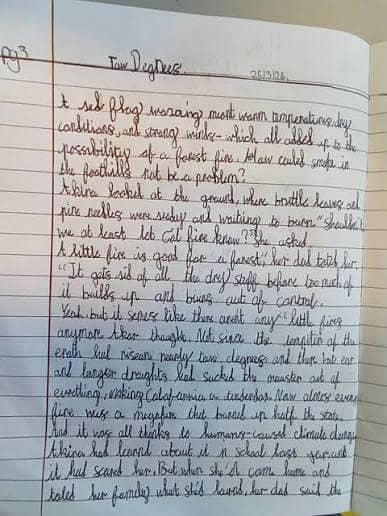 pg 3
Tow Degrees.
25/3/26
A red flag warning ment warm temperatures, dry
conditions, and strong winds - which all added up to the
possibility of a forest fire. How could smoke in
the foothills not be a problem?
Akira looked at the ground, where brittle leaves and
pine needles were ready and waiting to burn. "Shouldn't
we at least let Cal fire know?" She asked.
A little fire is good for a forest, her dad told her.
"It gets rid of all the dry stuff before too much of
it builds up and burns out of control.
Yeah, but it seems like there arent any "little fires
anymore Aker thought. Not since the of the
erath had risean nearly tow degrees and there
and langer draughts had sucked the out of
everything, making a tinderbox. Now almost every
fire was a megafire that burned up half the state,
And it was all thanks to humans-caused climate change
Akira had learnd about it in school last year and
it had scared her. But when she'd came home and
toled her family what she'd learnd, her dad said the